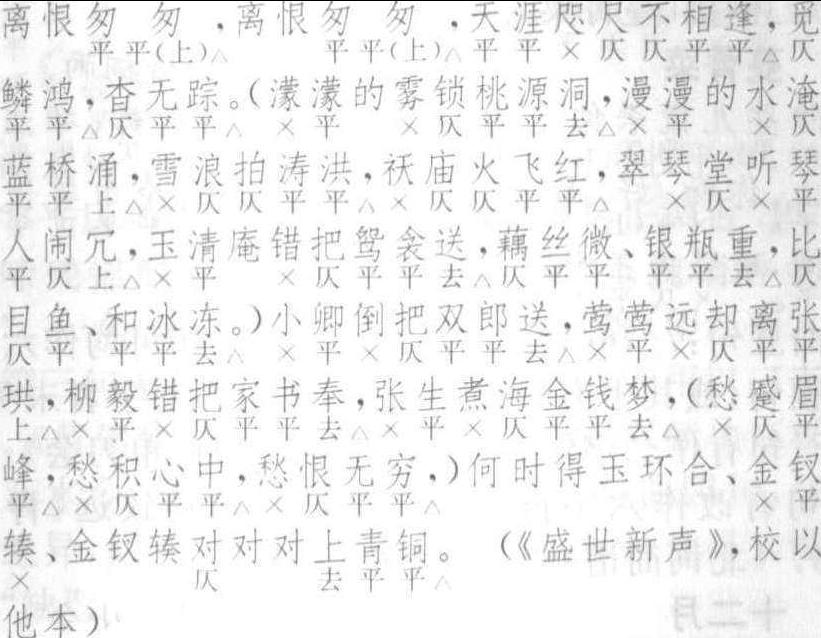 离恨匆匆,离恨匆匆,天涯咫尺不相逢,觅
平平(上)△平平(上)△平平×仄仄平平△仄
鳞鸿,杳无踪。(濛濛的雾锁桃源洞,漫漫的水淹
平平△仄平平△×平×仄平平去△×平×仄
蓝桥涌,雪浪拍涛洪,祆庙火飞红,翠琴堂听琴
平平上△×仄仄平平△×仄仄平平△×仄×平
人闹冗,玉清庵错把鸳衾送,藕丝微、银瓶重,比
平仄上△×平×仄平平去△仄平平平平去△仄
目鱼、和冰冻。)小卿倒把双郎送,莺莺远却离张
仄平平平去△×平×仄平平去△×平×仄平平
珙,柳毅错把家书奉,张生煮海金钱梦,(愁蹙眉
上△×平×仄平平去△×平×仄平平去△×仄平
峰,愁积心中,愁恨无穷,)何时得玉环合、金钗
平△×仄平平△×仄平平△×平
辏、金钗辏对对对上青铜。(《盛世新声》,校以
×仄去平平△
他本)